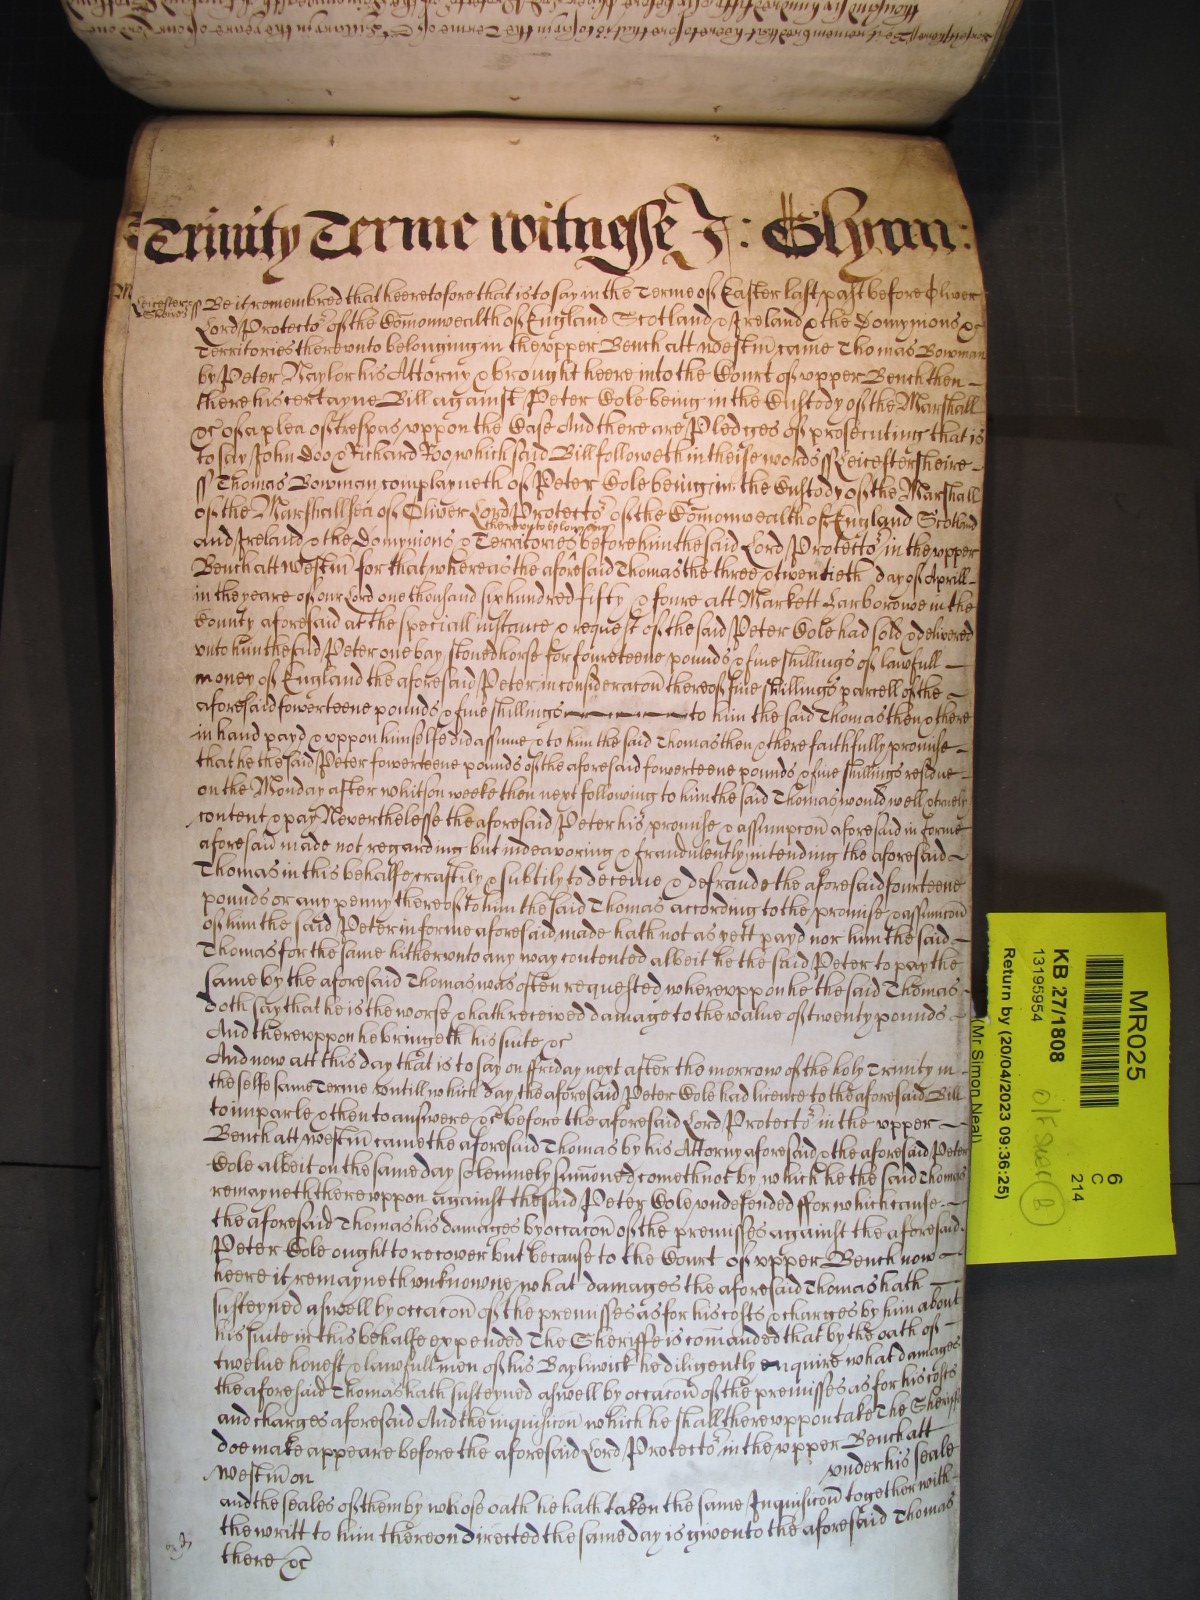 Trinity Terme witnesse J: Glynn:
Leicester ss Be it remembred that heeretofore that is to say in the Terme of Easter last past before Oliver
Lord Protector of the Comonwealth of England Scotland & Ireland & the Domynions &
Territories therevnto belonging in the vpper Bench att Westm̄ came Thomas Bowman
by Peter Naylor his Attorny & brought heere into the Court of vpper Bench then –
there his certayne Bill against Peter Cole being in the Custody of the Marshall
&c of a plea of trespas vppon the Case And there are Pledges of prosecuting that is
to say John Doo & Richard Roo, which said Bill followeth in theise words ss Leicestersheire –
ss Thomas Bowman complayneth of Peter Cole being in the Custody of the Marshall
of the Marshallsea of Oliver Lord Protector of the Comonwealth of England Scotland
therevnto belonging
and Ireland & the Domynions & Territories before him the said Lord Protector in the vpper
Bench att Westm̄ for that whereas the aforesaid Thomas the three & twentieth day of Aprill –
in the yeare of our Lord one thousand six hundred fifty & foure att Markett Harborowe in the
County aforesaid at the speciall instance & request of the said Peter Cole had sold & delivered
vnto him the said Peter one bay stoned horse for foureteene pounds & five shillings of lawfull –
money of England the aforesaid Peter in consideracon thereof five shillings parcell of the –
aforesaid fowerteene pounds & five shillings to him the said Thomas then & there
in hand payd & vppon himselfe did assume & to him the said Thomas then & there faithfully promise –
that he the said Peter fowerteene pounds of the aforesaid fowerteene pounds & five shillings residue –
on the Monday after whitson weeke then next following to him the said Thomas would well & truely
content & pay Neverthelesse the aforesaid Peter his promise & assumpcon aforesaid in forme
aforesaid made not regarding but indeavoring & fraudulently intending the aforesaid –
Thomas in this behalfe craftily & subtily to deceive & defraude the aforesaid fourteene
pounds or any penny thereof to him the said Thomas according to the promise & assumcon
of him the said Peter in forme aforesaid made hath not as yett payd nor him the said –
Thomas for the same hithervnto any way contented albeit he the said Peter to pay the
same by the aforesaid Thomas was often requested wherevppon he the said Thomas –
doth say that he is the worse & hath received damage to the value of twenty pounds –
And therevppon he bringeth his suite &c
And now att this day that is to say on ffriday next after the morrow of the holy Trinity in –
the selfe same Terme vntill which day the aforesaid Peter Cole had licence to the aforesaid Bill
to imparle & then to answere &c before the aforesaid Lord Protector in the vpper –
Bench att Westm̄ came the aforesaid Thomas by his Attorny aforesaid & the aforesaid Peter
Cole albeit on the same day solemnely sum̄oned cometh not by which he the said Thomas
remayneth therevppon against the said Peter Cole vndefended ffor which cause –
the aforesaid Thomas his damages by occacon of the premisses against the aforesaid
Peter Cole ought to recover but because to the Court of vpper Bench now –
heere it remayneth vnknowne what damages the aforesaid Thomas hath –
susteyned aswell by occacon of the premisses as for his costs & charges by him about
his suite in this behalfe expended The Sheriffe is com̄anded that by the oath of –
twelve honest & lawfull men of his Bayliwick he diligently enquire what damages
the aforesaid Thomas hath susteyned aswell by occacon of the premisses as for his costs
and charges aforesaid And the inquisicon which he shall therevppon take The Sheriffe
doe make appeare before the aforesaid Lord Protector in the vpper Bench att
Westm̄ on vnder his seale
and the seales of them by whose oath he hath taken the same Inquisicon together with –
the writt to him thereon directed the same day is given to the aforesaid Thomas
there &c
MR025
6
C
214
KB 27/1808
13195954
Return by (20/04/2023 09:36:25)
(Mr Simon Neal)